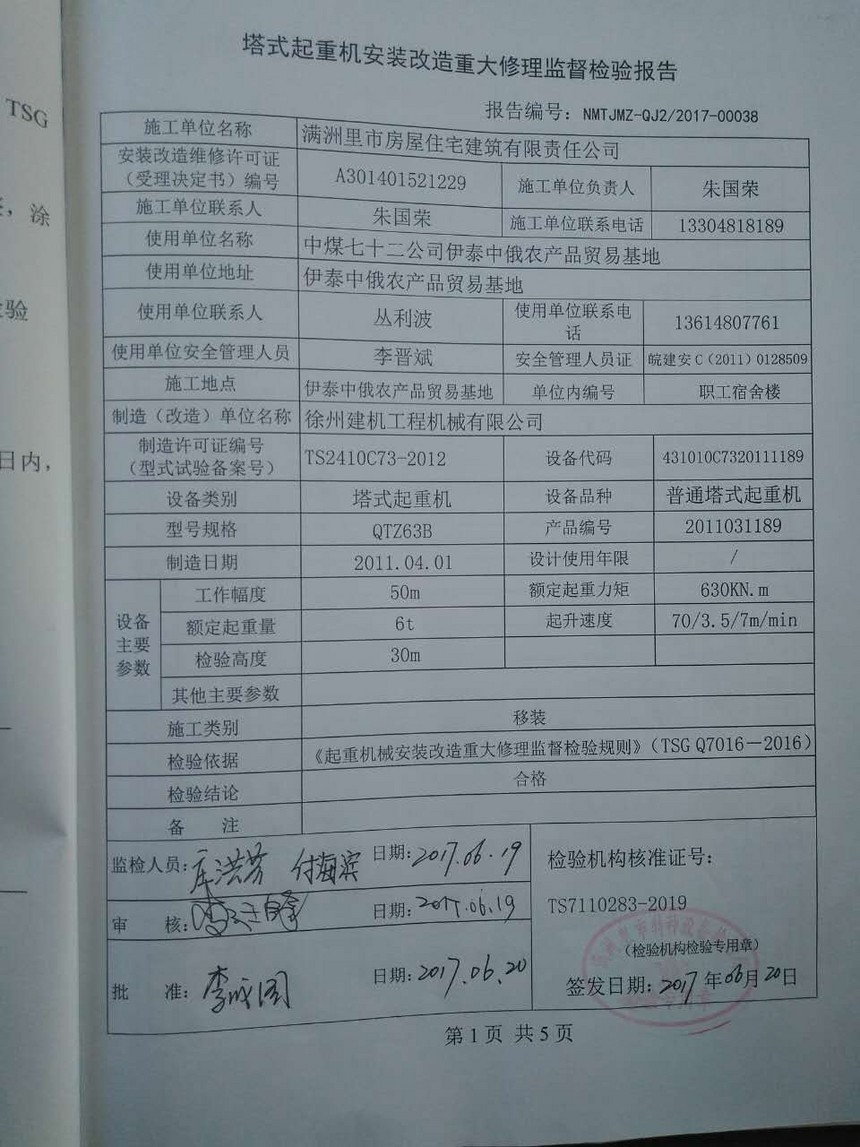 TSG
涂
验
日内，
塔式起重机安装改造重大修理监督检验报告
报告编号：NMTJMZ-QJ2/2017-00038
施工单位名称 满洲里市房屋住宅建筑有限责任公司
安装改造维修许可证
（受理决定书）编号 A301401521229 施工单位负责人 朱国荣
施工单位联系人 朱国荣 施工单位联系电话 13304818189
使用单位名称 中煤七十二公司伊泰中俄农产品贸易基地
使用单位地址 伊泰中俄农产品贸易基地
使用单位联系人 丛利波 使用单位联系电
话 13614807761
使用单位安全管理人员 李晋斌 安全管理人员证 皖建安C（2011）0128509
施工地点 伊泰中俄农产品贸易基地 单位内编号 职工宿舍楼
制造（改造）单位名称 徐州建机工程机械有限公司
制造许可证编号
（型式试验备案号） TS2410C73-2012 设备代码 431010C7320111189
设备类别 塔式起重机 设备品种 普通塔式起重机
型号规格 QTZ63B 产品编号 2011031189
制造日期 2011.04.01 设计使用年限 /
设备
主要
参数
工作幅度 50m 额定起重力矩 630KN.m
额定起重量 6t 起升速度 70/3.5/7m/min
检验高度 30m
其他主要参数
施工类别 移装
检验依据 《起重机械安装改造重大修理监督检验规则》（TSG Q7016－2016）
检验结论 合格
备 注
监检人员： 付海滨 日期：2017.06.19
审 核： 日期：2017.06.19
批 准： 日期：2017.06.20
检验机构核准证号：
TS7110283-2019
（检验机构检验专用章）
签发日期：2017年06月20日
第1页 共5页